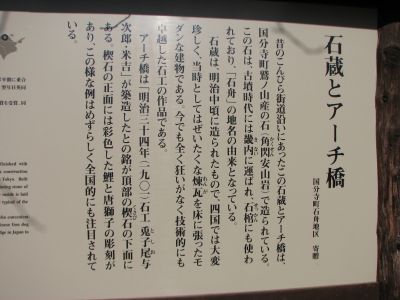 石蔵とアーチ橋
国分寺町石舟地区 寄贈
昔のこんぴら街道沿いにあったこの石蔵とアーチ橋は、
国分寺町鷲ノ山産の石(角閃安山岩)で造られている。
この石は、古墳時代には畿内に運ばれ、石棺にも使わ
れており、「石舟」の地名の由来となっている。
石蔵は、明治中頃に造られたもので、四国では大変
珍しく、当時としてはぜいたくな煉瓦を床に張ったモ
ダンな建物である。今でも全く狂いがなく技術的にも
卓越した石工の作品である。
アーチ橋は「明治三十四年(一九〇一)石工 兎子尾与
次郎・米吉」が築造したとの銘が頂部の楔石の下面に
ある。楔石の正面には彩色した鯉と唐獅子の彫刻が
あり、この様な例はめずらしく全国的にも注目されて
いる。